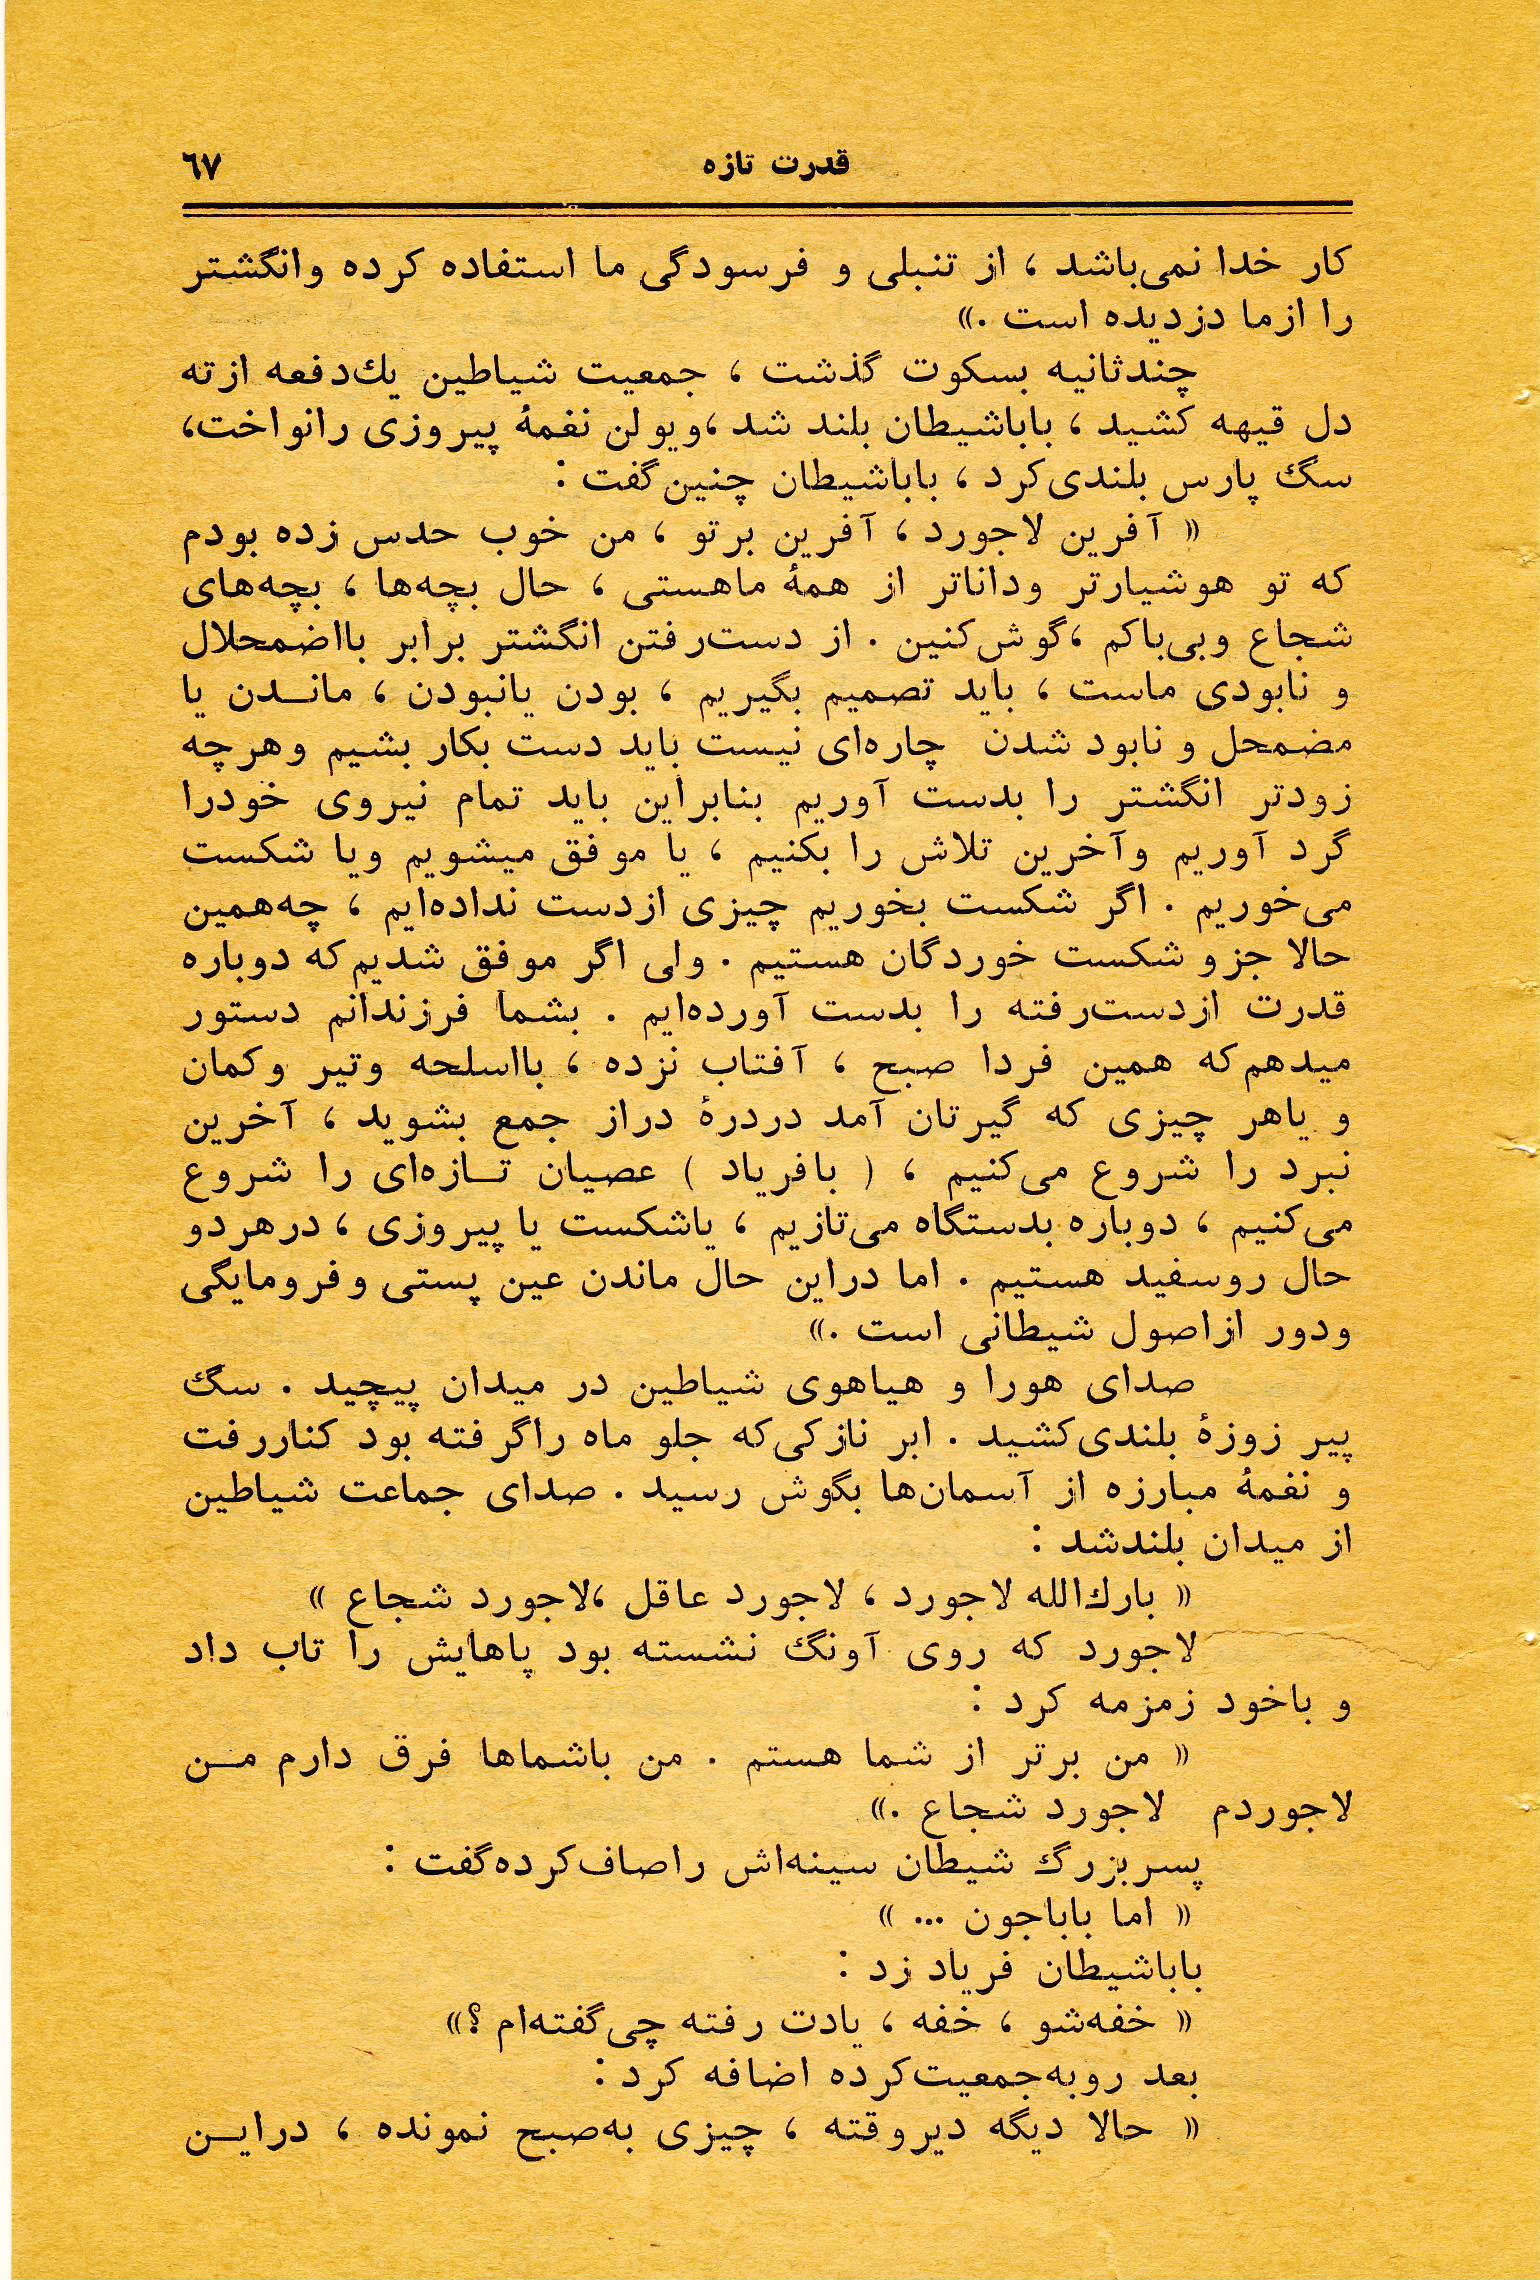 قدرت تازه ٦٧
کار خدا نمی‌باشد ، از تنبلی و فرسودگی ما استفاده کرده وانگشتر
را ازما دزدیده است .»
چندثانیه بسکوت گذشت ، جمعیت شیاطین یك‌دفعه ازته
دل قیهه کشید ، باباشیطان بلند شد ،ویولن نغمهٔ پیروزی رانواخت،
سگ پارس بلندی‌کرد ، باباشیطان چنین‌گفت :
« آفرین لاجورد ، آفرین برتو ، من خوب حدس زده بودم
که تو هوشیارتر وداناتر از همهٔ ماهستی ، حال بچه‌ها ، بچه‌های
شجاع وبی‌باکم ،گوش‌کنین . از دست‌رفتن انگشتر برابر بااضمحلال
و نابودی ماست ، باید تصمیم بگیریم ، بودن یانبودن ، مانــدن یا
مضمحل و نابود شدن چاره‌ای نیست باید دست بکار بشیم وهرچه
زودتر انگشتر را بدست آوریم بنابراین باید تمام نیروی خودرا
گرد آوریم وآخرین تلاش را بکنیم ، یا موفق میشویم ویا شکست
می‌خوریم . اگر شکست بخوریم چیزی ازدست نداده‌ایم ، چه‌همین
حالا جزو شکست خوردگان هستیم . ولی اگر موفق شدیم‌که دوباره
قدرت ازدست‌رفته را بدست آورده‌ایم . بشما فرزندانم دستور
میدهم‌که همین فردا صبح ، آفتاب نزده ، بااسلحه وتیر وکمان
و یاهر چیزی که گیرتان آمد دردرهٔ دراز جمع بشوید ، آخرین
نبرد را شروع می‌کنیم ، ( بافریاد ) عصیان تــازه‌ای را شروع
می‌کنیم ، دوباره بدستگاه می‌تازیم ، یاشکست یا پیروزی ، درهردو
حال روسفید هستیم . اما دراین حال ماندن عین پستی وفرومایگی
ودور ازاصول شیطانی است .»
صدای هورا و هیاهوی شیاطین در میدان پیچید . سگ
پیر زوزهٔ بلندی‌کشید . ابر نازکی‌که جلو ماه راگرفته بود کناررفت
و نغمهٔ مبارزه از آسمان‌ها بگوش رسید . صدای جماعت شیاطین
از میدان بلندشد :
« بارك‌الله لاجورد ، لاجورد عاقل ،لاجورد شجاع »
لاجورد که روی آونگ نشسته بود پاهایش را تاب داد
و باخود زمزمه کرد :
« من برتر از شما هستم . من باشماها فرق دارم مــن
لاجوردم لاجورد شجاع .»
پسربزرگ شیطان سینه‌اش راصاف‌کرده‌گفت :
« اما باباجون ... »
باباشیطان فریاد زد :
« خفه‌شو ، خفه ، یادت رفته چی‌گفته‌ام ؟»
بعد روبه‌جمعیت‌کرده اضافه کرد :
« حالا دیگه دیروقته ، چیزی به‌صبح نمونده ، درایــن